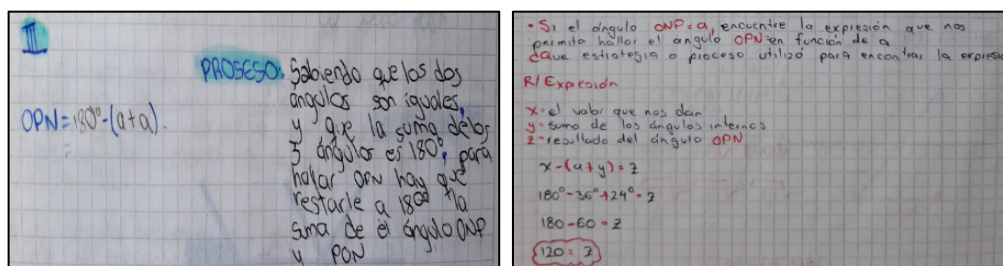 III
OPN = 180° - (a + a).
=
PROSESO: Sabiendo que los dos
ángulos son iguales,
y que la suma de los
3 ángulos es 180°, para
hallar OPN hay que
restarle a 180° la
suma de el ángulo ONP
y PON
• Si el ángulo ONP = a, encuentre la expresión que nos
permita hallar el angulo OPN en función de a
¿Que estrategia o proceso utilizó para encontrar la expresió
R/ Expresión
x = el valor que nos dan
y = suma de los ángulos internos
z = resultado del ángulo OPN
x - (a + y) = z
180° - 36° + 24° = z
180 - 60 = z
120 = z